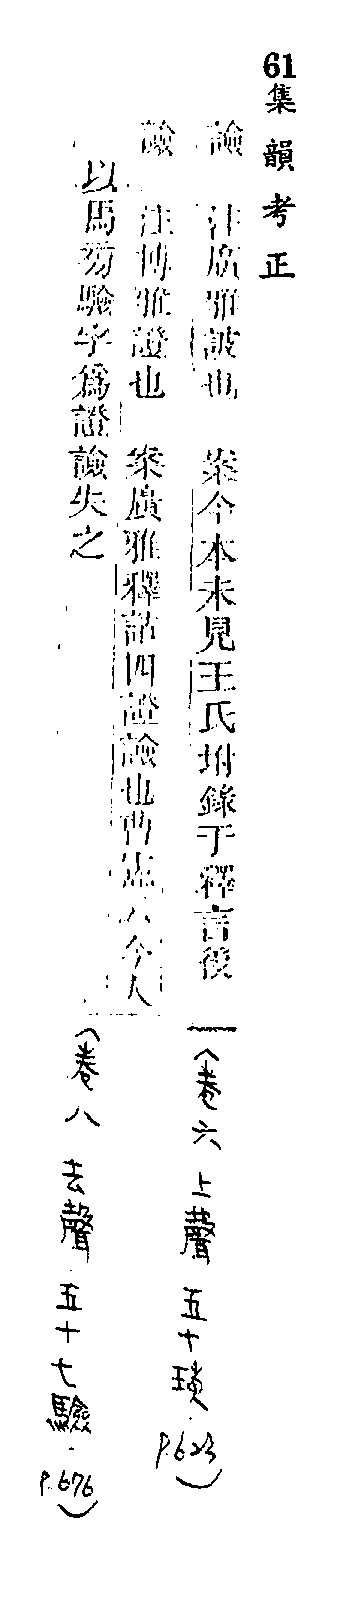 61集韻考正
譣　注廣雅詖也　案今本未見王氏坿錄于釋言後
（卷六 上聲 五十琰 P.623）
譣　注博雅證也　案廣雅釋詁四證譣也曹憲云今人
以馬旁驗字為證譣失之
（卷八 去聲 五十七驗 P.676）